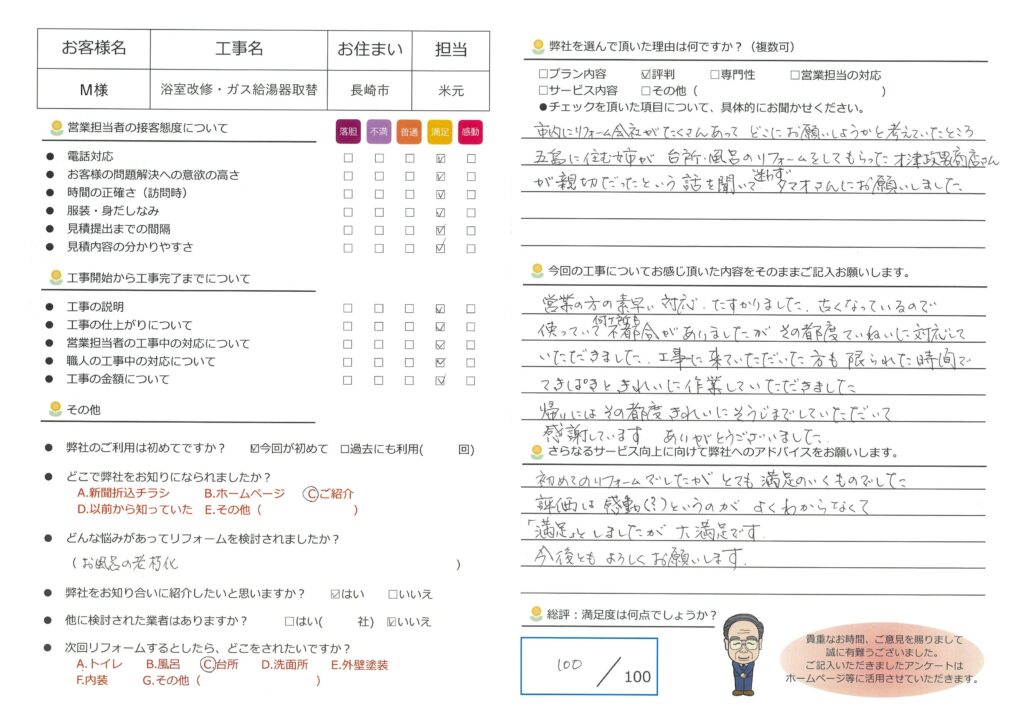 お客様名 工事名 お住まい 担当
M様 浴室改修・ガス給湯器取替 長崎市 米元
営業担当者の接客態度について 落胆 不満 普通 満足 感動
● 電話対応 □ □ □ ☑ □
● お客様の問題解決への意欲の高さ □ □ □ ☑ □
● 時間の正確さ(訪問時) □ □ □ ☑ □
● 服装・身だしなみ □ □ □ ☑ □
● 見積提出までの間隔 □ □ □ ☑ □
● 見積内容の分かりやすさ □ □ □ ☑ □
工事開始から工事完了までについて
● 工事の説明 □ □ □ ☑ □
● 工事の仕上がりについて □ □ □ ☑ □
● 営業担当者の工事中の対応について □ □ □ ☑ □
● 職人の工事中の対応について □ □ □ ☑ □
● 工事の金額について □ □ □ ☑ □
その他
● 弊社のご利用は初めてですか? ☑今回が初めて □過去にも利用( 回)
● どこで弊社をお知りになられましたか?
A.新聞折込チラシ B.ホームページ Ⓒご紹介
D.以前から知っていた E.その他( )
● どんな悩みがあってリフォームを検討されましたか?
(お風呂の老朽化 )
● 弊社をお知り合いに紹介したいと思いますか? ☑はい □いいえ
● 他に検討された業者はありますか? □はい( 社) ☑いいえ
● 次回リフォームするとしたら、どこをされたいですか?
A.トイレ B.風呂 Ⓒ台所 D.洗面所 E.外壁塗装
F.内装 G.その他( )
弊社を選んで頂いた理由は何ですか?(複数可)
□プラン内容 ☑評判 □専門性 □営業担当の対応
□サービス内容 □その他( )
●チェックを頂いた項目について、具体的にお聞かせください。
市内にリフォーム会社がたくさんあって どこにお願いしようかと考えていたところ
五島に住む姉が 台所・風呂のリフォームをしてもらった 才津政男商店さん
が親切だったという話を聞いて 迷わず タマオさんにお願いしました
今回の工事についてお感じ頂いた内容をそのままご記入お願いします。
営業の方の素早い対応.たすかりました.古くなっているので
使っていて 何ヶ所も 不都合がありましたが その都度ていねいに対応して
いただきました.工事に来ていただいた方も限られた時間で
てきぱきときれいに作業していただきました
帰りにはその都度きれいにそうじまでしていただいて
感謝しています ありがとうございました.
さらなるサービス向上に向けて弊社へのアドバイスをお願いします。
初めてのリフォームでしたが とても満足のいくものでした
評価は感動(?)というのが よくわからなくて
「満足」としましたが 大満足です.
今後とも よろしくお願いします.
総評:満足度は何点でしょうか?
100/100
貴重なお時間、ご意見を賜りまして
誠に有難うございました。
ご記入いただきましたアンケートは
ホームページ等に活用させていただきます。